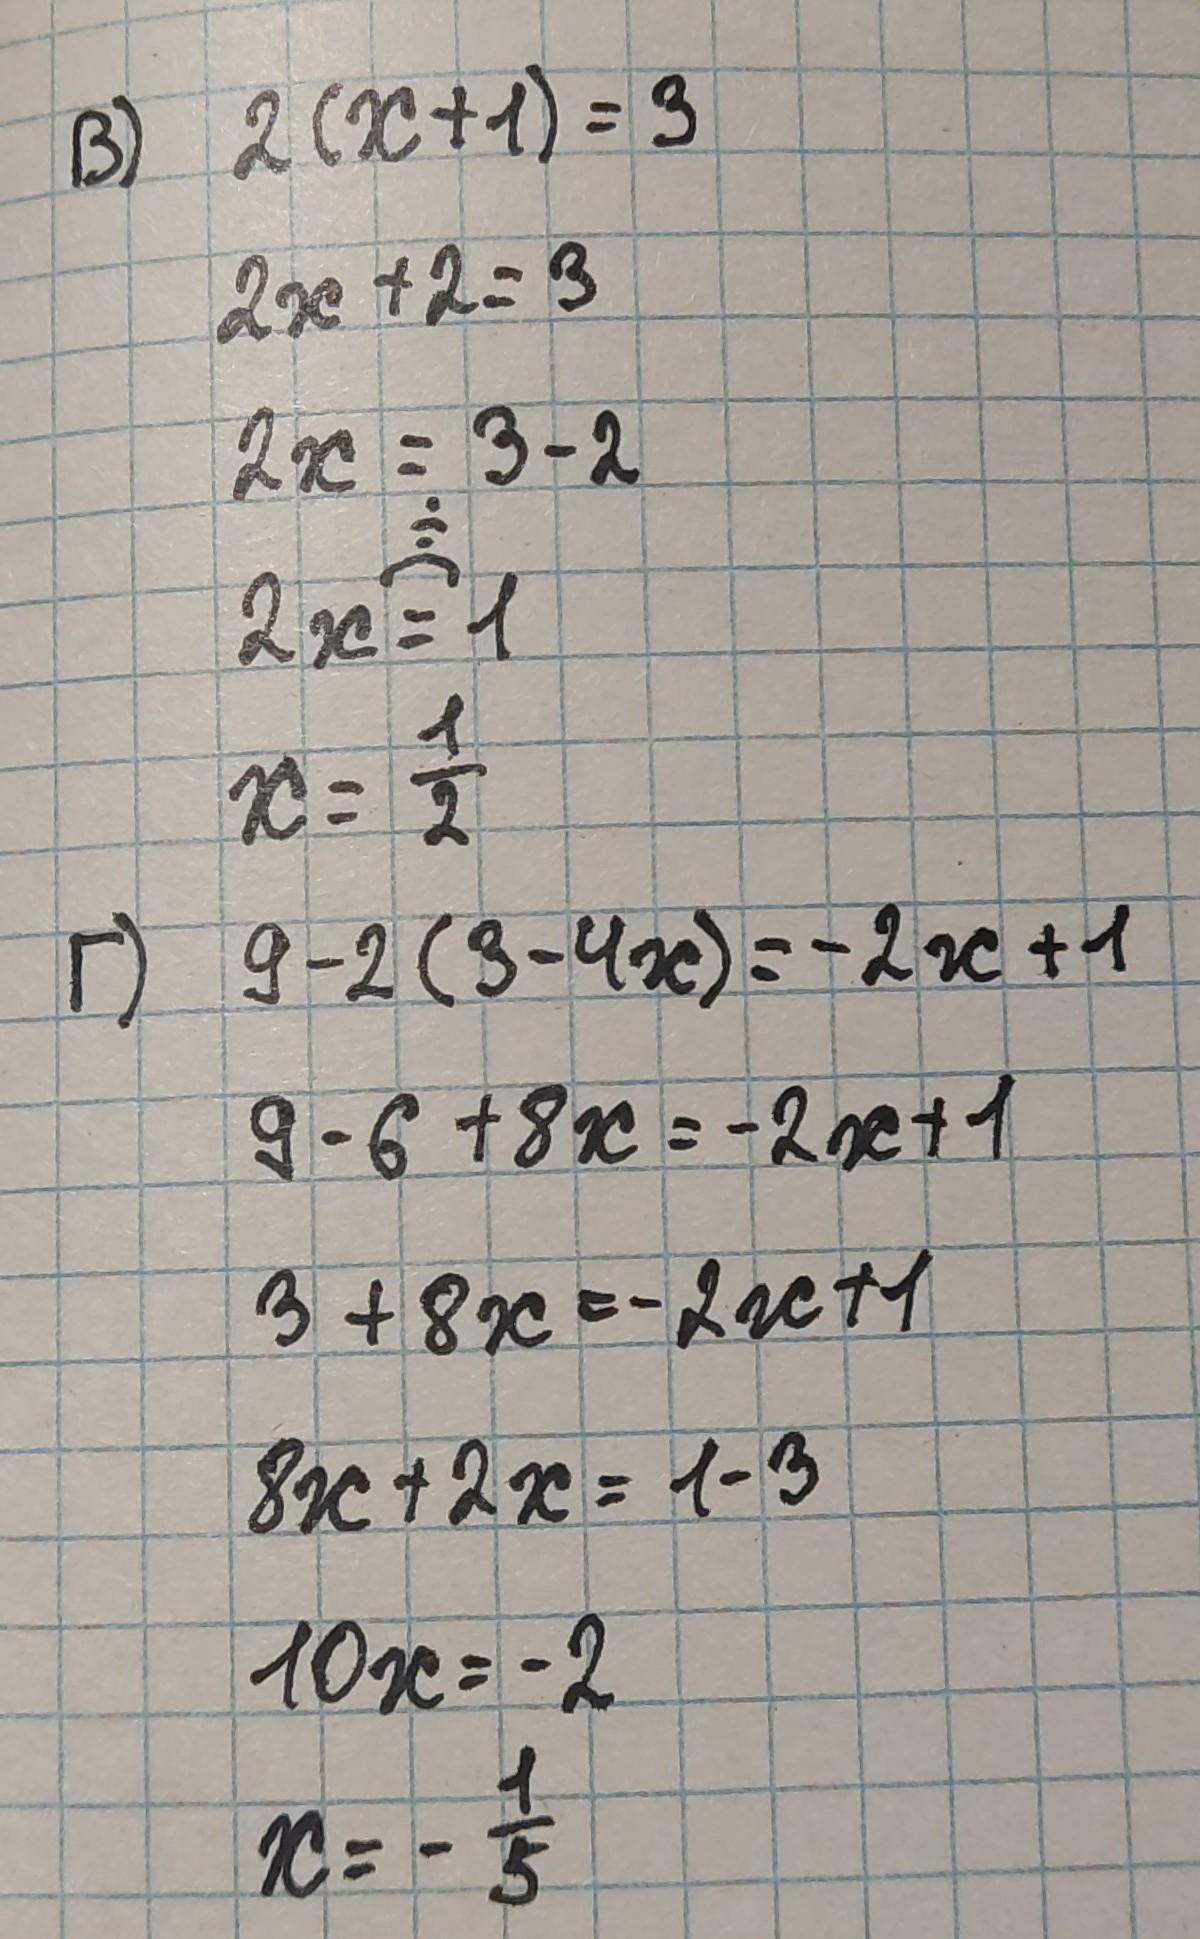 В) 2(x+1)=3
2x+2=3
2x=3-2
÷
2x=1
x=1/2
Г) 9-2(3-4x)=-2x+1
9-6+8x=-2x+1
3+8x=-2x+1
8x+2x=1-3
10x=-2
x=-1/5